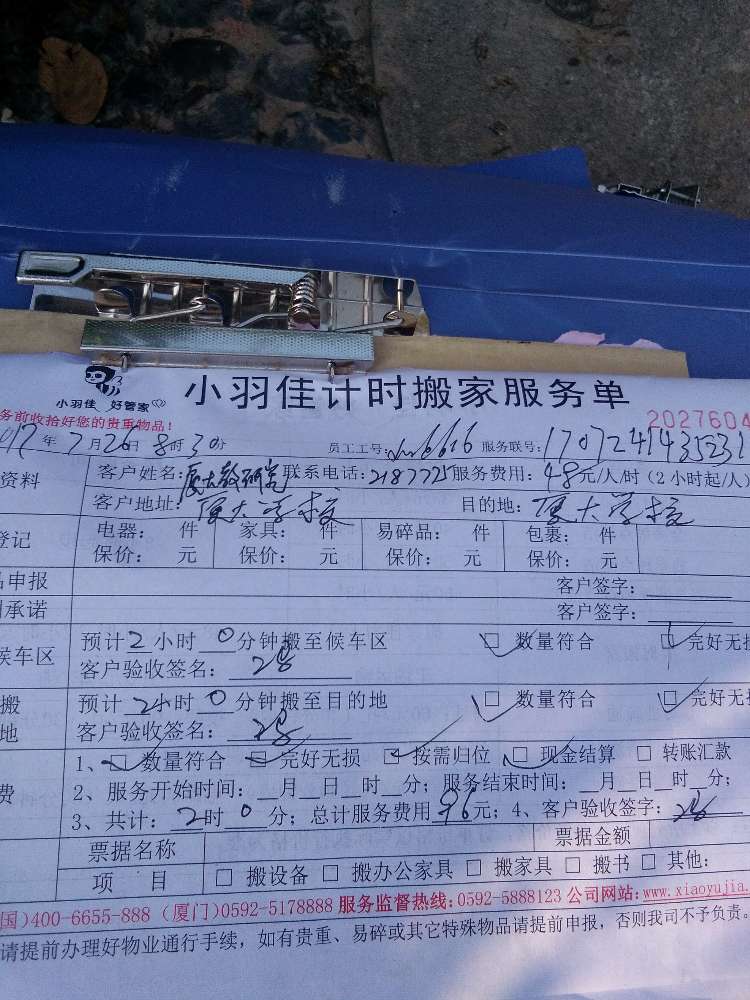 小羽佳 好管家
小羽佳计时搬家服务单
务前收拾好您的贵重物品！
2027604
年7月26日8时30分 员工工号: 6616 服务联号:
资料 客户姓名:厦大教研究 联系电话:2187725 服务费用:48元/人/时(2小时起/人)
客户地址:厦大学校 目的地:厦大学校
登记 电器: 件 家具: 件 易碎品: 件 包裹: 件
保价: 元 保价: 元 保价: 元 保价: 元
品申报 客户签字:
承诺 客户签字:
候车区 预计2小时0分钟搬至候车区 □ 数量符合 □ 完好无损
客户验收签名:
搬 预计2小时0分钟搬至目的地 □ 数量符合 □ 完好无损
地 客户验收签名:
1、□ 数量符合 □ 完好无损 □ 按需归位 □ 现金结算 □ 转账汇款
费 2、服务开始时间: 月 日 时 分; 服务结束时间: 月 日 时 分;
3、共计: 2时0分; 总计服务费用96元; 4、客户验收签字:
票据名称 票据金额
项 目 □ 搬设备 □ 搬办公家具 □ 搬家具 □ 搬书 □ 其他:
国)400-6655-888 (厦门)0592-5178888 服务监督热线:0592-5888123 公司网站:www.xiaoyujia.
请提前办理好物业通行手续，如有贵重、易碎或其它特殊物品请提前申报，否则我司不予负责。